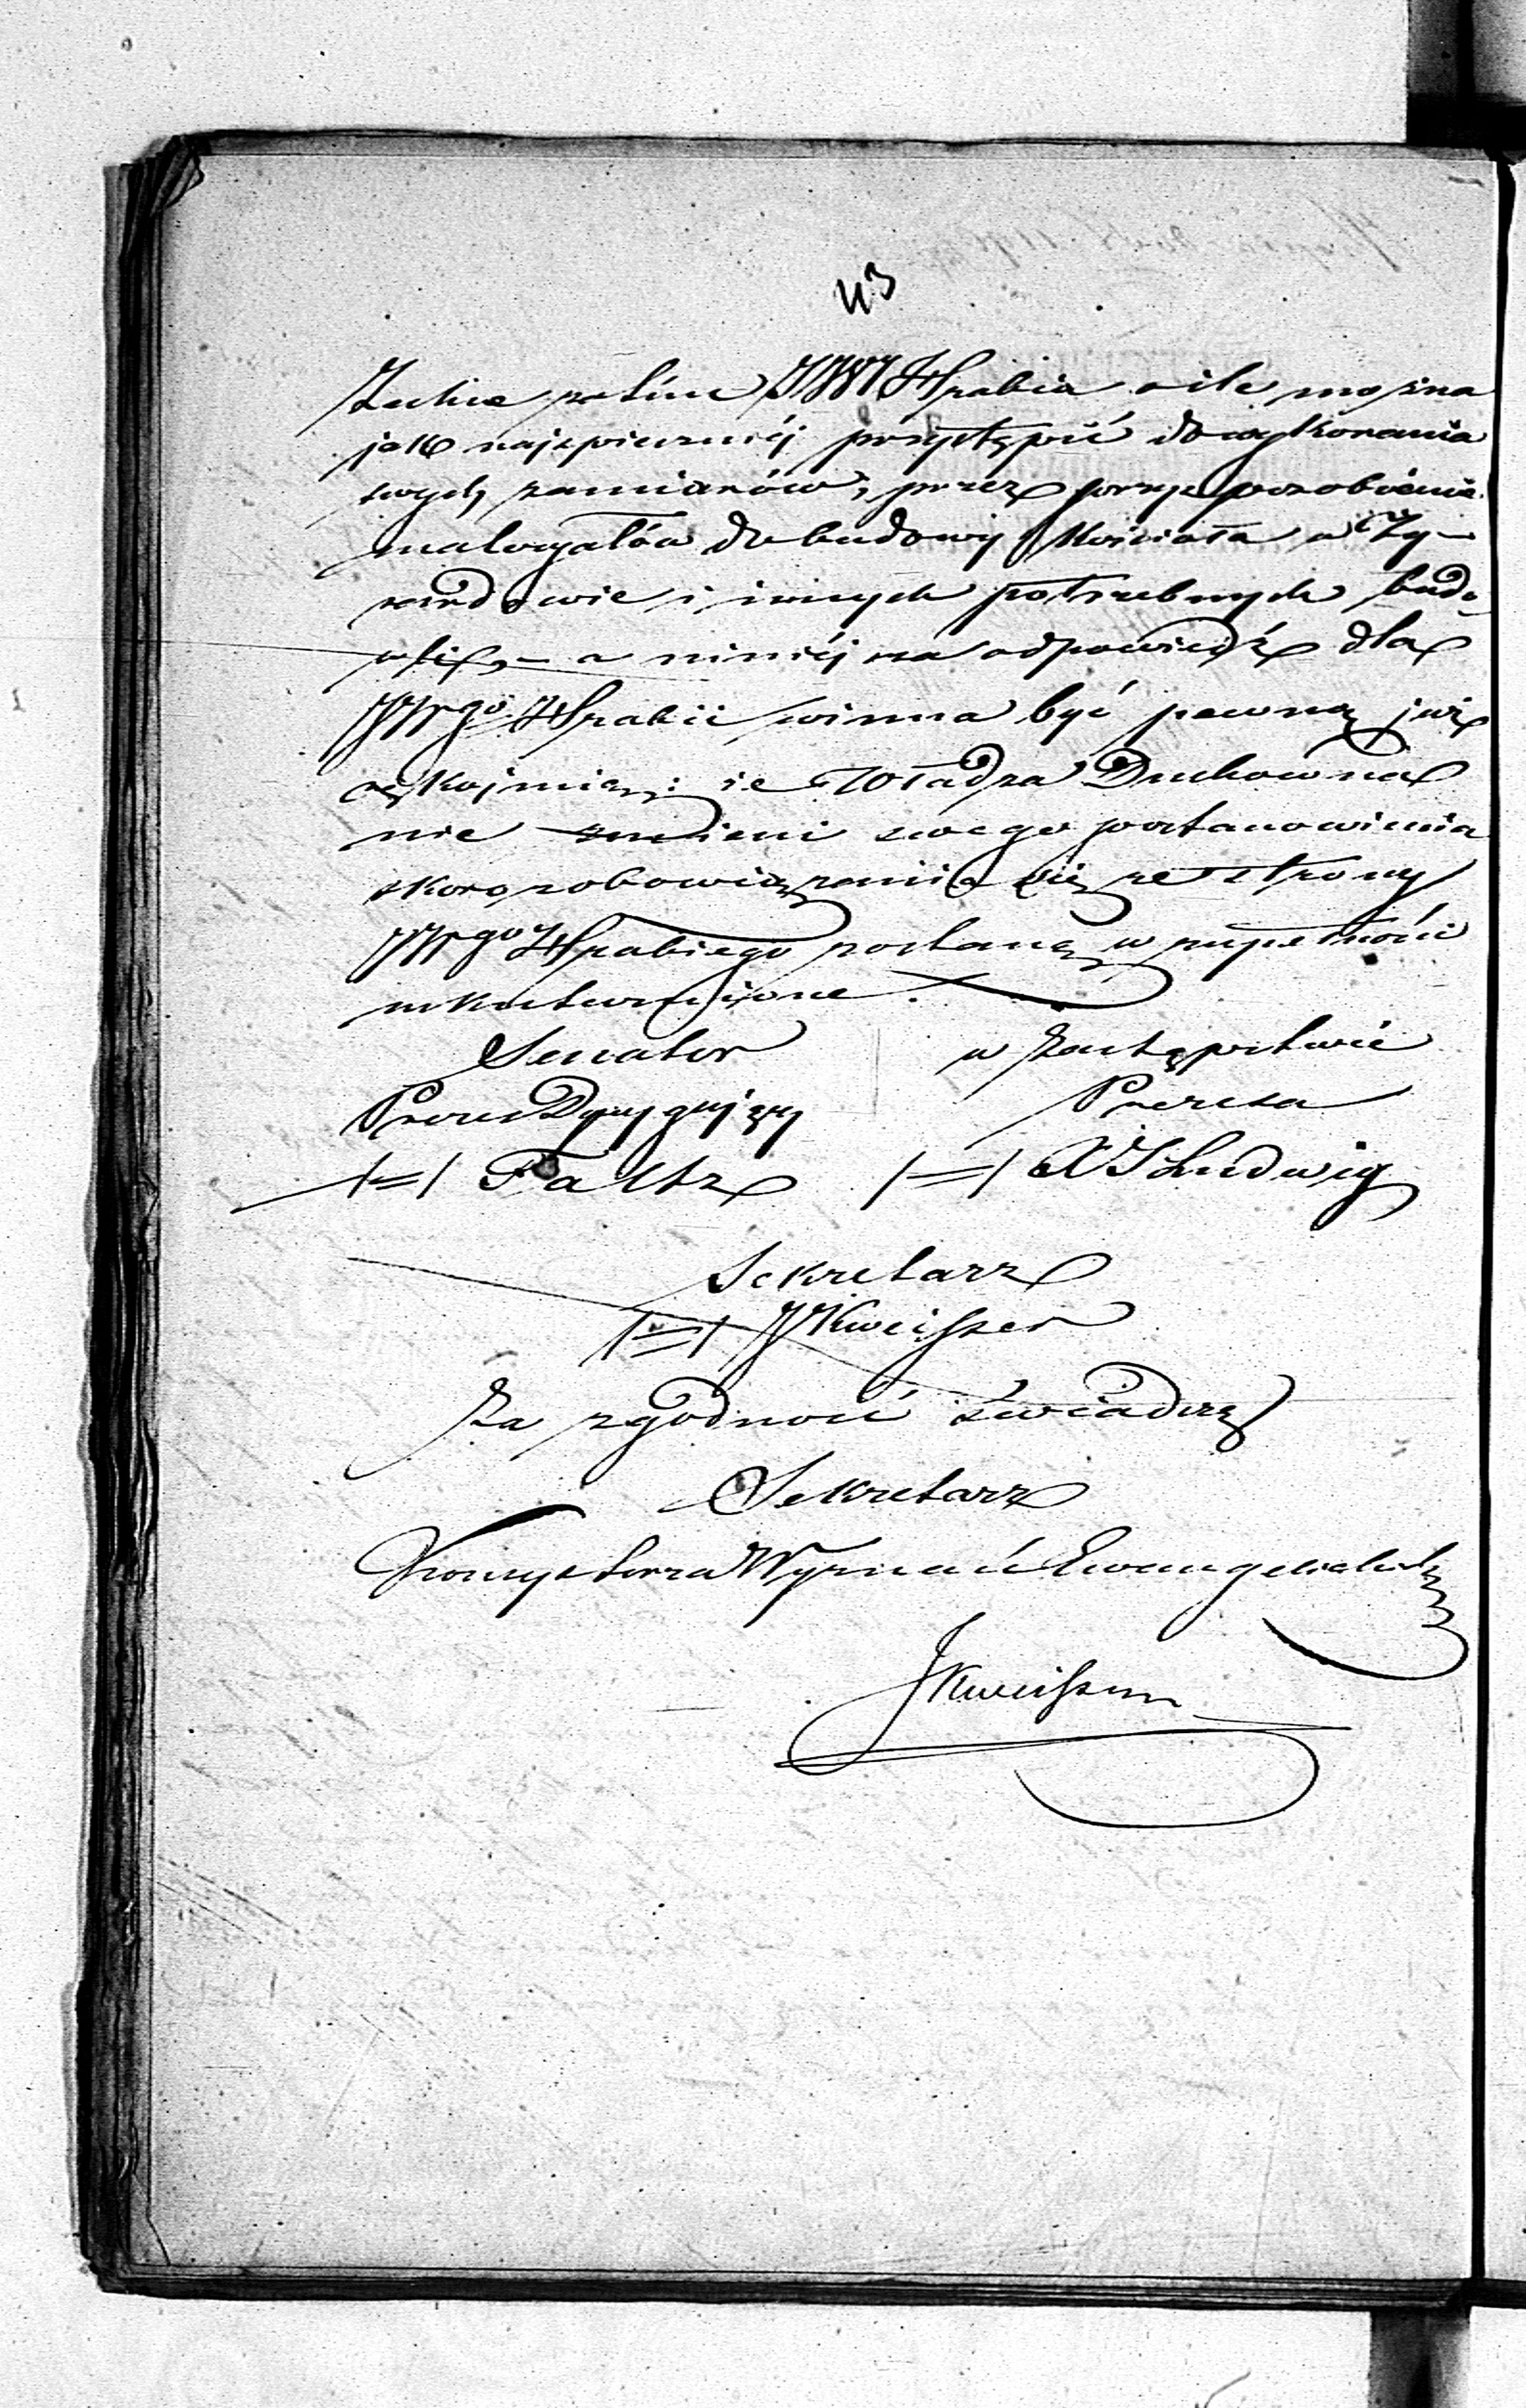 43
Zechce zatém JWJ Hrabia o ile można
jak najspieszniéj przystąpić do wykonania
swych zamiarów, przez przysposobienie
materyałów do budowy Kościoła w Ży-
rardowie i innych potrzebnych budo-
wli, – a niniéj za odpowiedź dla
JWgo Hrabii winna być pewną już
rękojmią, że Władza Duchowna
nie zmieni swego postanowienia
skoro zobowiązania się ze strony
JWgo Hrabiego zostaną w zupełności
uskutecznione.
Senator w Zastępstwie
Prezes Dyrygujący Prezesa
/=/ Faltz /=/ X J Ludwig
Sekretarz
/=/ J Kweisser
Za zgodność świadczę
Sekretarz
Konsystorza Wyznań Ewangelickich
JKweisser